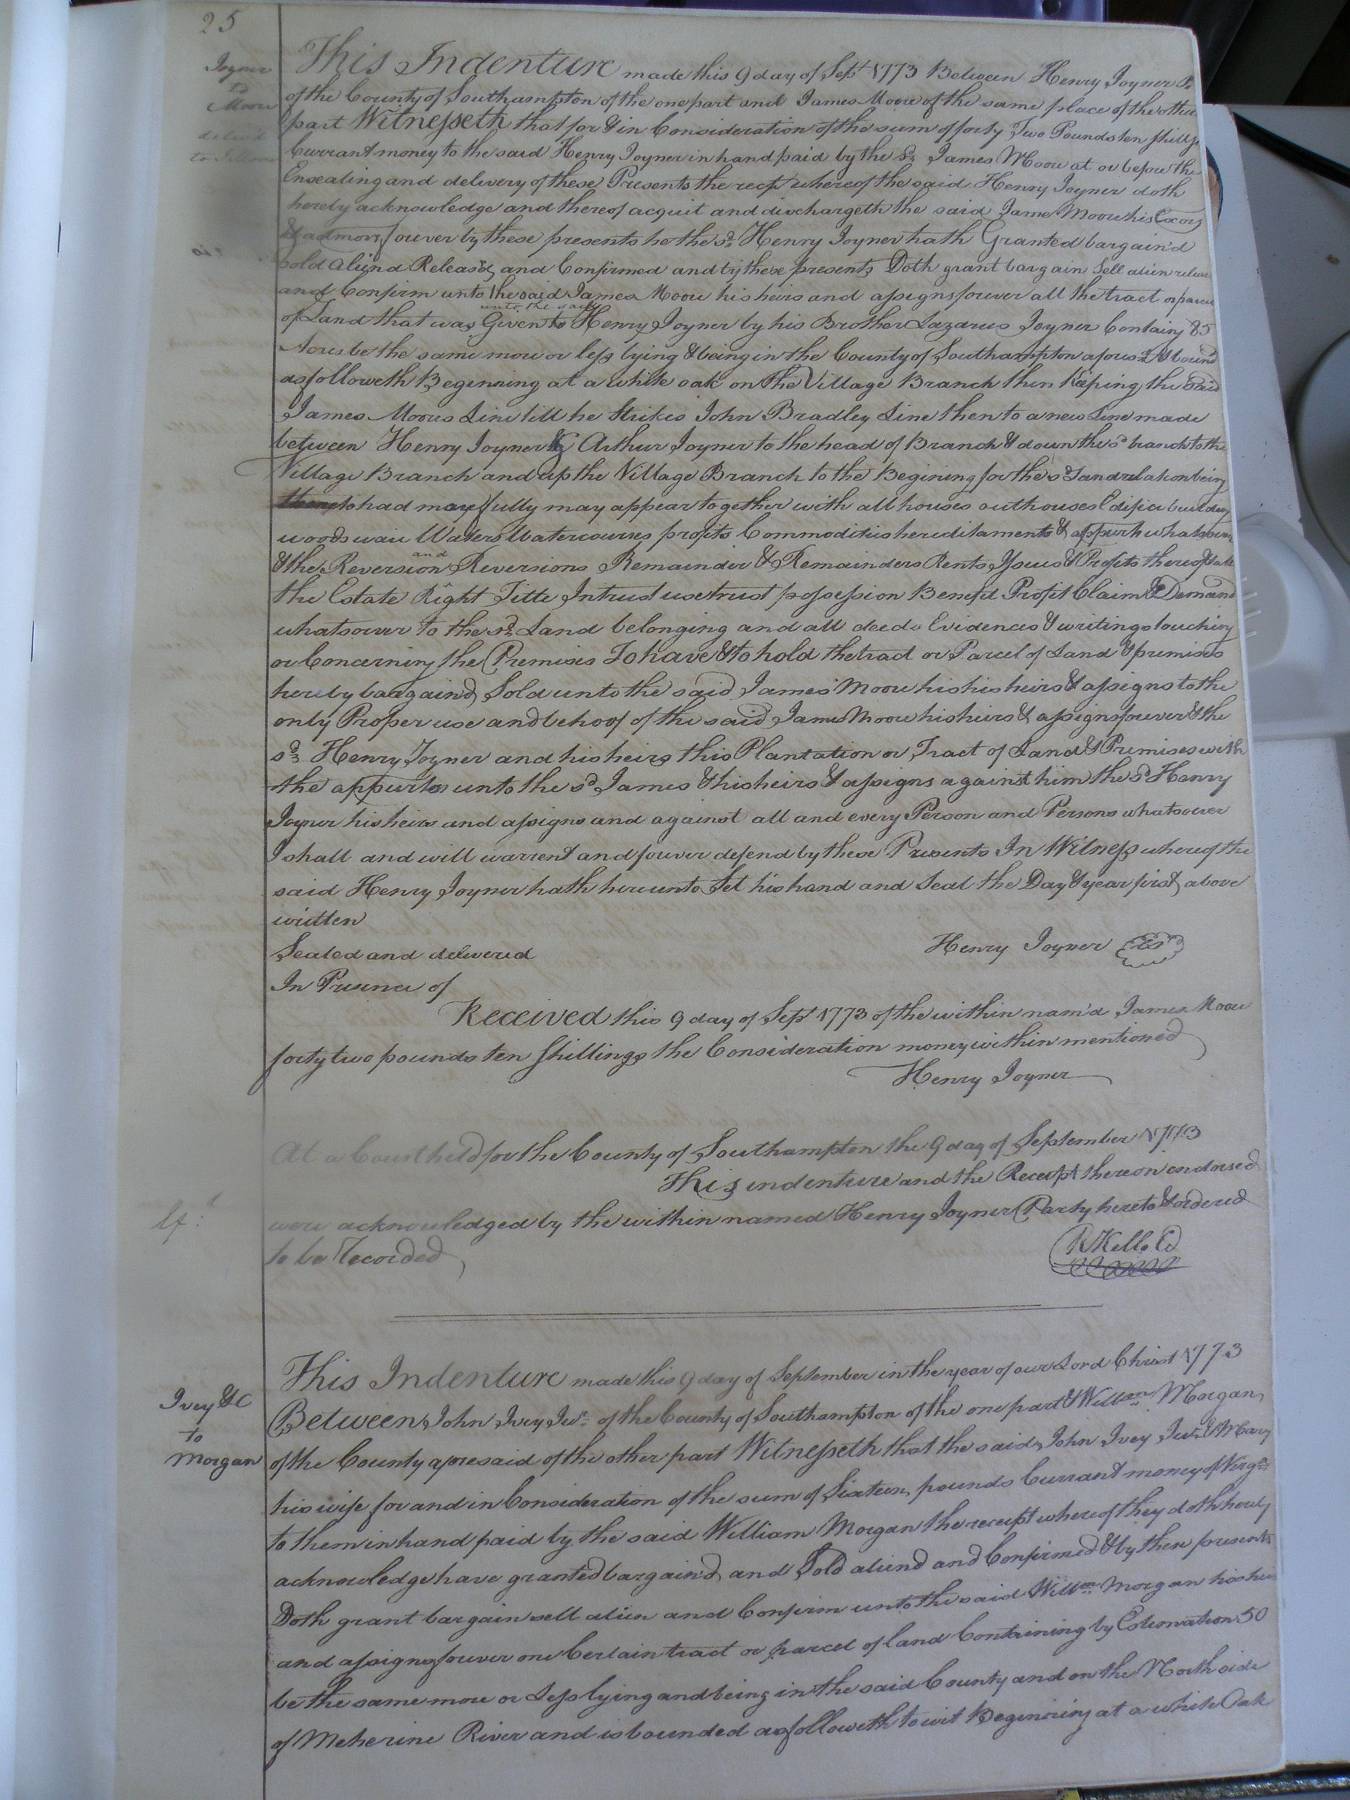 25
Joyner
to
Moore
This Indenture made this 9 day of Sept 1773 Between Henry Joyner
of the County of Southampton of the one part and James Moore of the same place of the other
part Witnesseth that for & in Consideration of the sum of forty Two Pounds ten shills
Currant money to the said Henry Joyner in hand paid by the sd James Moore at or before the
Ensealing and delivery of these Presents the rect whereof the said Henry Joyner doth
hereby acknowledge and thereof acquit and dischargeth the said James Moore his Excors
& admors forever by these presents he the sd Henry Joyner hath Granted bargain'd
sold Alien'd Releas'd and Confirmed and by these presents Doth grant bargain Sell alien release
and Confirm unto the said James Moore his heirs and assigns forever all the tract or parcel
of Land that was Given to Henry Joyner by his Brother Lazarus Joyner Containg 85
Acres be the same more or less lying & being in the County of Southampton aforesd & bound
as followeth Beginning at a white oak on the Village Branch then Keeping the said
James Moores Line till he Strikes John Bradley Line then to a new Line made
between Henry Joyner & Arthur Joyner to the head of Branch & down the sd branch to the
Village Branch and up the Village Branch to the Begining for the sd Land relation being
thereto had may fully may appear together with all houses outhouses Edifices buildings
woods Waters Watercourses profits Commodities hereditaments & appurts whatsoever
& the Reversion and Reversions Remainder & Remainders Rents Yssues & Profits thereof & all
the Estate Right Title Intrust use trust possession Benefit Profit Claim & Demand
whatsoever to the sd Land belonging and all deeds Evidences & writings touching
or Concerning the Premises To have & to hold the tract or Parcel of Land & premises
hereby bargaind Sold unto the said James Moore his his heirs & assigns to the
only Proper use and behoof of the said James Moore his heirs & assigns forever & the
sd Henry Joyner and his heirs this Plantation or Tract of Land & Premises with
the appurts unto the sd James & his heirs & assigns against him the sd Henry
Joyner his heirs and assigns and against all and every Person and Persons whatsoever
Shall and will warrent and forever defend by these Presents In Witness whereof the
said Henry Joyner hath hereunto Set his hand and Seal the Day & year first above
written
Sealed and delivered Henry Joyner
In Presence of
Received this 9 day of Sept 1773 of the within nam'd James Moore
forty two pounds ten shillings the Consideration money within mentioned
Henry Joyner
At a Court held for the County of Southampton the 9 day of September 1773
This indenture and the Receipt thereon endorsed
were acknowledged by the within named Henry Joyner Party hereto & ordered
to be Recorded
R Kello
Ivey &C
to
Morgan
This Indenture made this 9 day of September in the year of our Lord Christ 1773
Between John Ivey Junr of the County of Southampton of the one part & Willm Morgan
of the County aforesaid of the other part Witnesseth that the said John Ivey Junr & Mary
his wife for and in Consideration of the sum of Sixteen pounds Currant money of Virga
to them in hand paid by the said William Morgan the receipt whereof they doth hereby
acknowledge have granted bargain'd and Sold aliend and Confirmed & by these presents
Doth grant bargain sell alien and Confirm unto the said Willm Morgan his heirs
and assigns forever one Certain tract or parcel of land Containing by Estimation 50
be the same more or Less lying and being in the said County and on the North side
of Meherine River and is bounded as followeth to wit Beginning at a white Oak